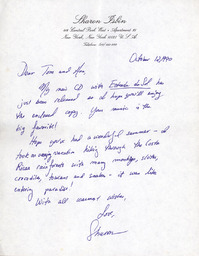 Sharon Isbin
New York, New York
October 12, 1990
Dear Tom and
My new CD with Entrada del Sol has
just been released so I hope you'll enjoy
the enclosed copy. Your music is the
big favorite!
Hope you've had a wonderful summer - I
took an amazing vacation hiking through the Costa
Rican rainforest with many monkeys, sloths,
crocodiles, toucans and snakes - it was like
entering paradise!
With all warmest wishes,
Love,
Sharon